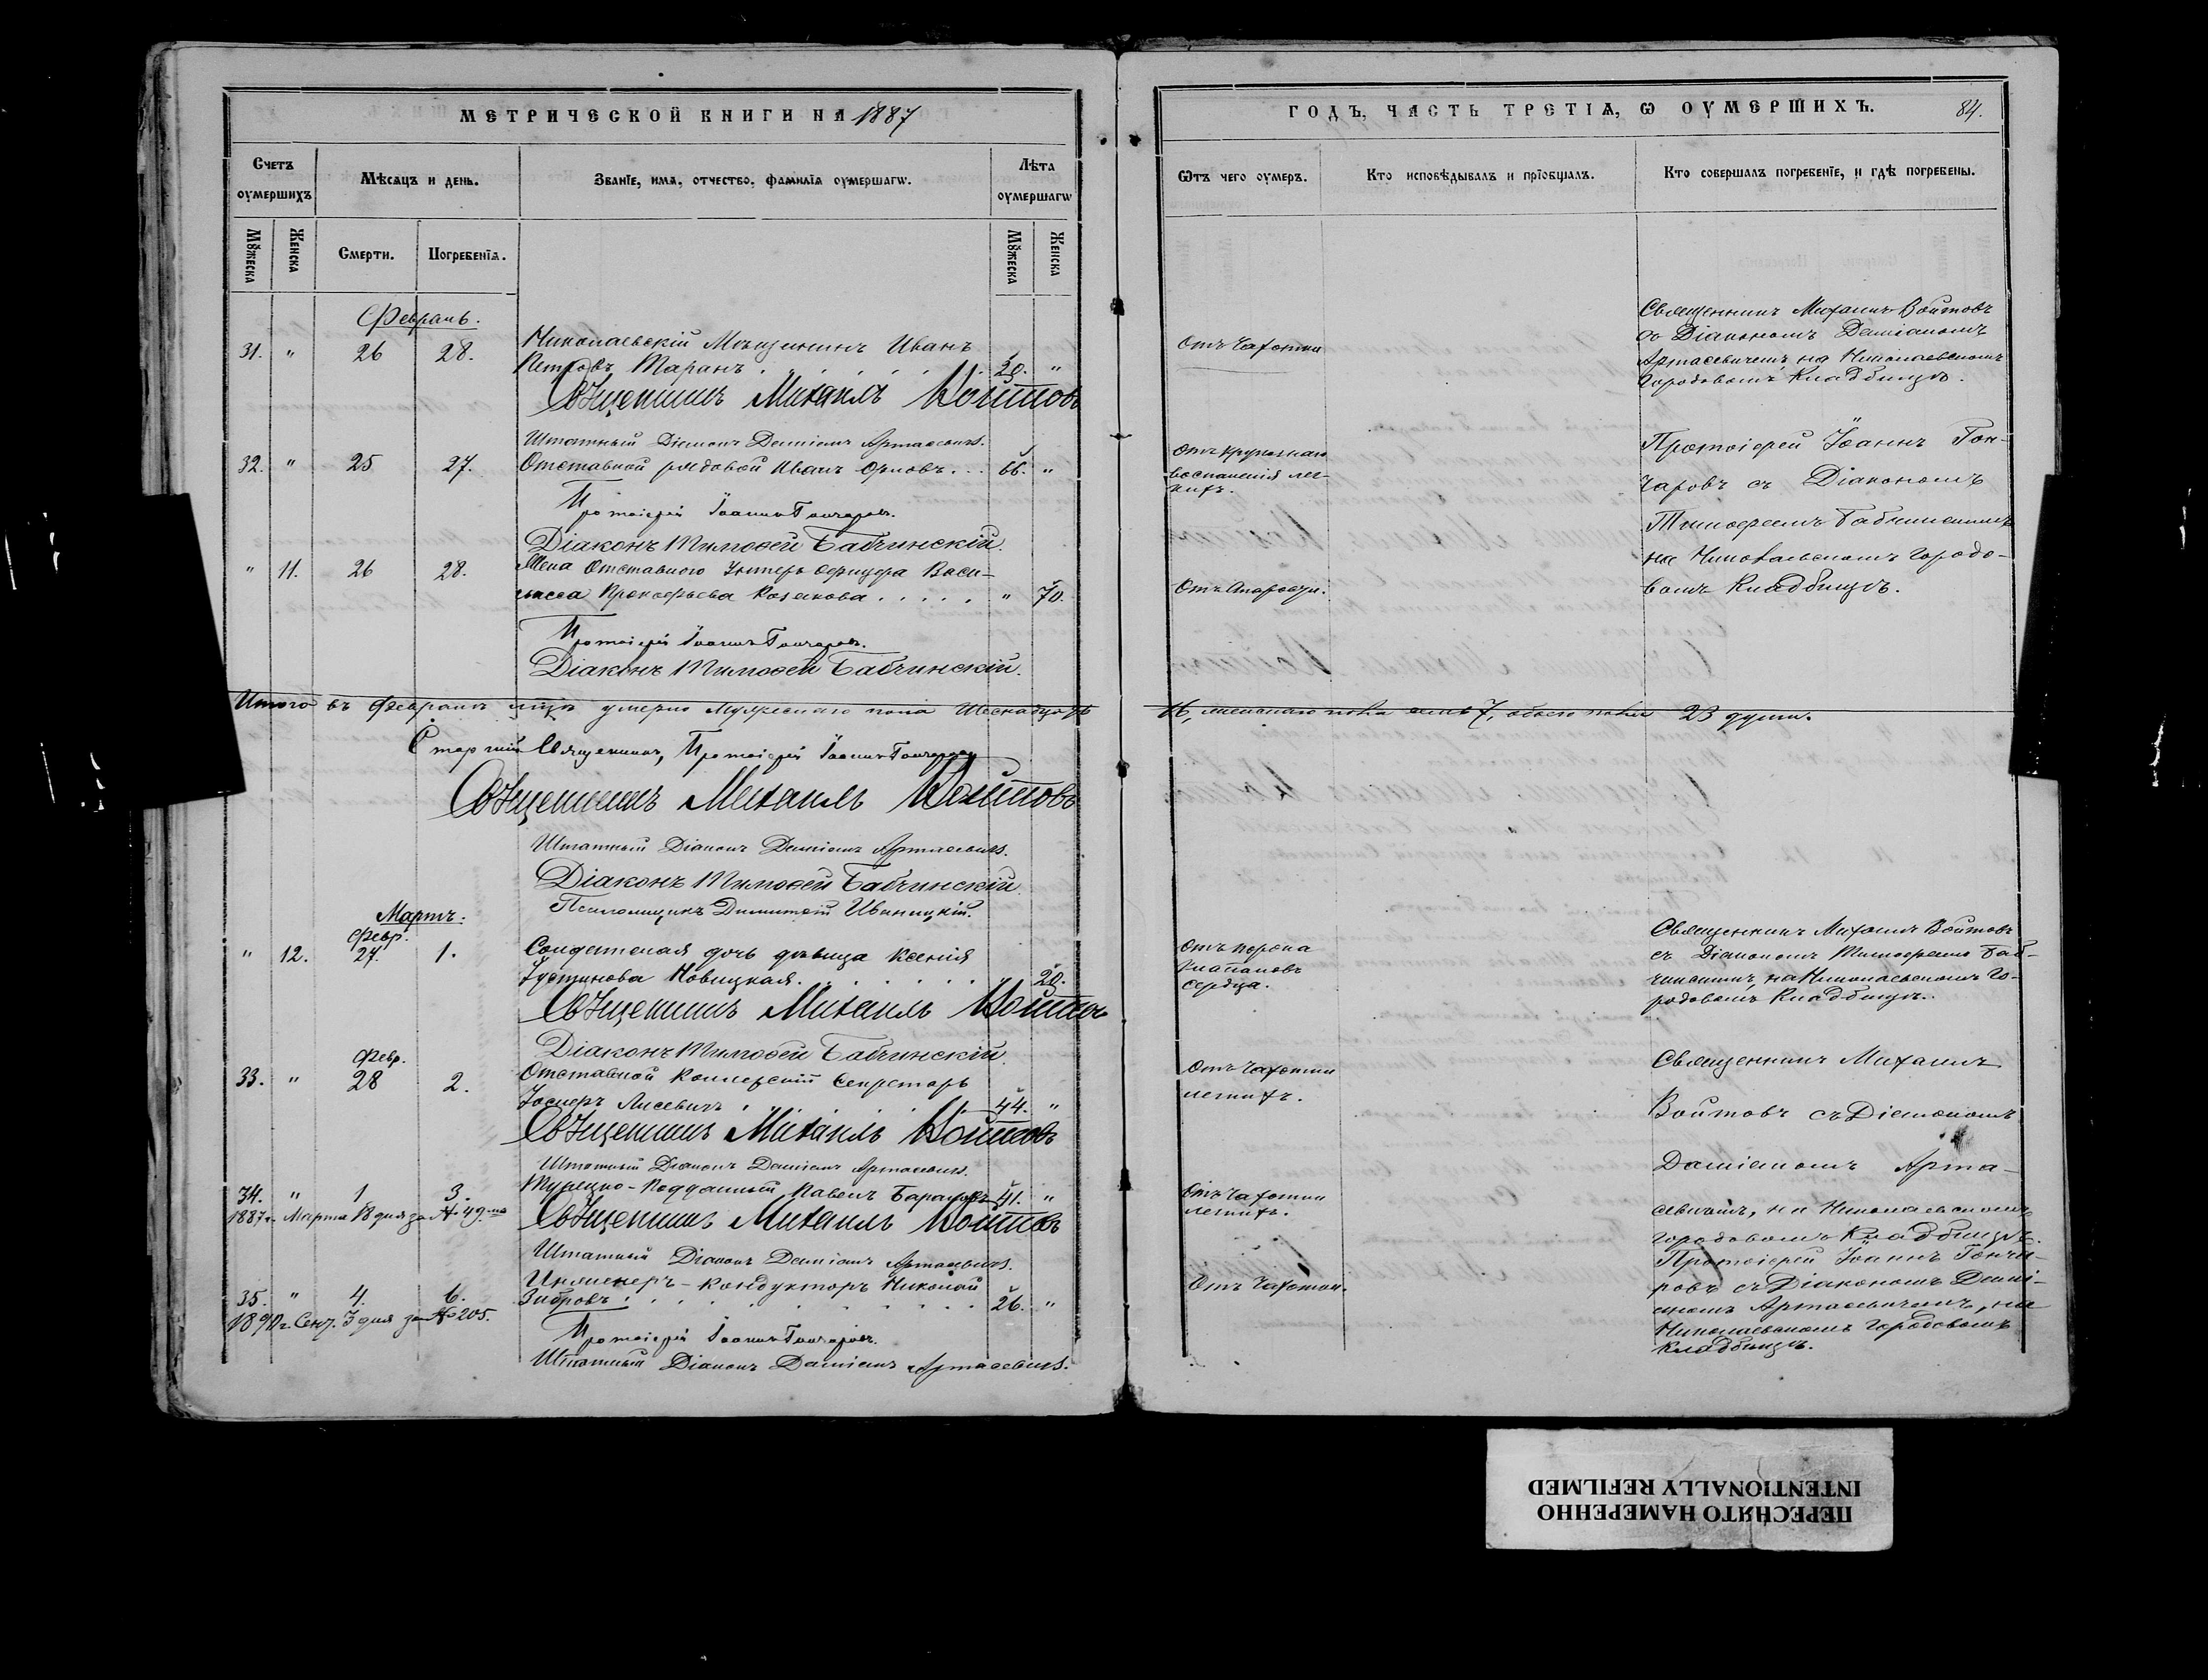 МЕТРИЧЕСКОЙ КНИГИ НА 1887
Счетъ оумершихъ
Мѣсяцъ и день.
Званіе, имя, отчество, фамилія оумершагѡ.
Лѣта оумершагѡ
Мꙋжеска
Женска
Смерти.
Погребенія.
Мꙋжеска
Женска
Февраль.
31. " 26 28. Николаевскій Мѣщанинъ Иванъ
Петровъ Таранъ 20. "
Священникъ Михаилъ Войтовъ
Штатный Діаконъ Даміанъ Артасевичъ.
32. " 25 27. Отставной рядовой Иванъ Орловъ 66. "
Протоіерей Іоаннъ Гончаровъ.
Діаконъ Тимоѳей Бабчинскій.
" 11. 26 28. Жена Отставного Унтеръ офицера Васи-
лисса Прокофьева Козакова " 70.
Протоіерей Іоаннъ Гончаровъ.
Діаконъ Тимоѳей Бабчинскій.
Итого въ Февралѣ мцѣ умерло Мужескаго пола Шеснадцать
Старшій Священникъ, Протоіерей Іоаннъ Гончаровъ
Священникъ Михаилъ Войтовъ
Штатный Діаконъ Даміанъ Артасевичъ.
Діаконъ Тимоѳей Бабчинскій
Псаломщикъ Димитрій Иваницкій.
Мартъ.
Февр.
" 12. 27. 1. Солдатская дочь дѣвица Ксенія
Іустинова Новицкая. 20.
Священникъ Михаилъ Войтовъ
Діаконъ Тимоѳей Бабчинскій
Февр.
33. " 28 2. Отставной Коллежскій Секретарь
Іосифъ Лисевичъ 44. "
Священникъ Михаилъ Войтовъ
Штатный Діаконъ Даміанъ Артасевичъ.
34. " 1 3. Турецко-Подданный Павелъ 41. "
1887г. Марта 18 дня за № 49.
Священникъ Михаилъ Войтовъ
Штатный Діаконъ Даміанъ Артасевичъ.
Инженеръ-Кондукторъ Николай
35. " 4. 6. Зибровъ 26. "
Сент. 3 дня за № 205.
Протоіерей Іоаннъ Гончаровъ.
Штатный Діаконъ Даміанъ Артасевичъ.
ГОДЪ, ЧАСТЬ ТРЕТІЯ, Ѡ ОУМЕРШИХЪ. 84.
Ѿтъ чего оумеръ.
Кто исповѣдывалъ и пріобщалъ.
Кто совершалъ погребеніе, и гдѣ погребены.
Отъ Чахотки
Священникъ Михаилъ Войтовъ
съ Діакономъ Даміаномъ
Артасевичемъ, на Николаевскомъ
Городовомъ Кладбищѣ.
Отъ крупознаго
воспаленія лег-
кихъ.
Протоіерей Іоаннъ Гон-
чаровъ съ Діакономъ
Тимоѳеемъ Бабчинскимъ
на Николаевскомъ Городо-
вомъ Кладбищѣ.
Отъ Старости.
16, женскаго пола семь 7, обоего пола 23 души.
Отъ порока
Клапановъ
сердца.
Священникъ Михаилъ Войтовъ
съ Діакономъ Тимоѳеемъ Баб-
чинскимъ, на Николаевскомъ Го-
родовомъ Кладбищѣ.
Отъ Чахотки
легкихъ.
Священникъ Михаилъ
Войтовъ съ Діакономъ
Даміаномъ Арта-
севичемъ, на Николаевскомъ
Городовомъ Кладбищѣ.
Отъ Чахотки
легкихъ.
Отъ Чахотки.
Протоіерей Іоаннъ Гонча-
ровъ съ Діакономъ Дамі-
аномъ Артасевичемъ, на
Николаевскомъ Городовомъ
Кладбищѣ.
ПЕРЕСНЯТО НАМЕРЕННО
INTENTIONALLY REFILMED